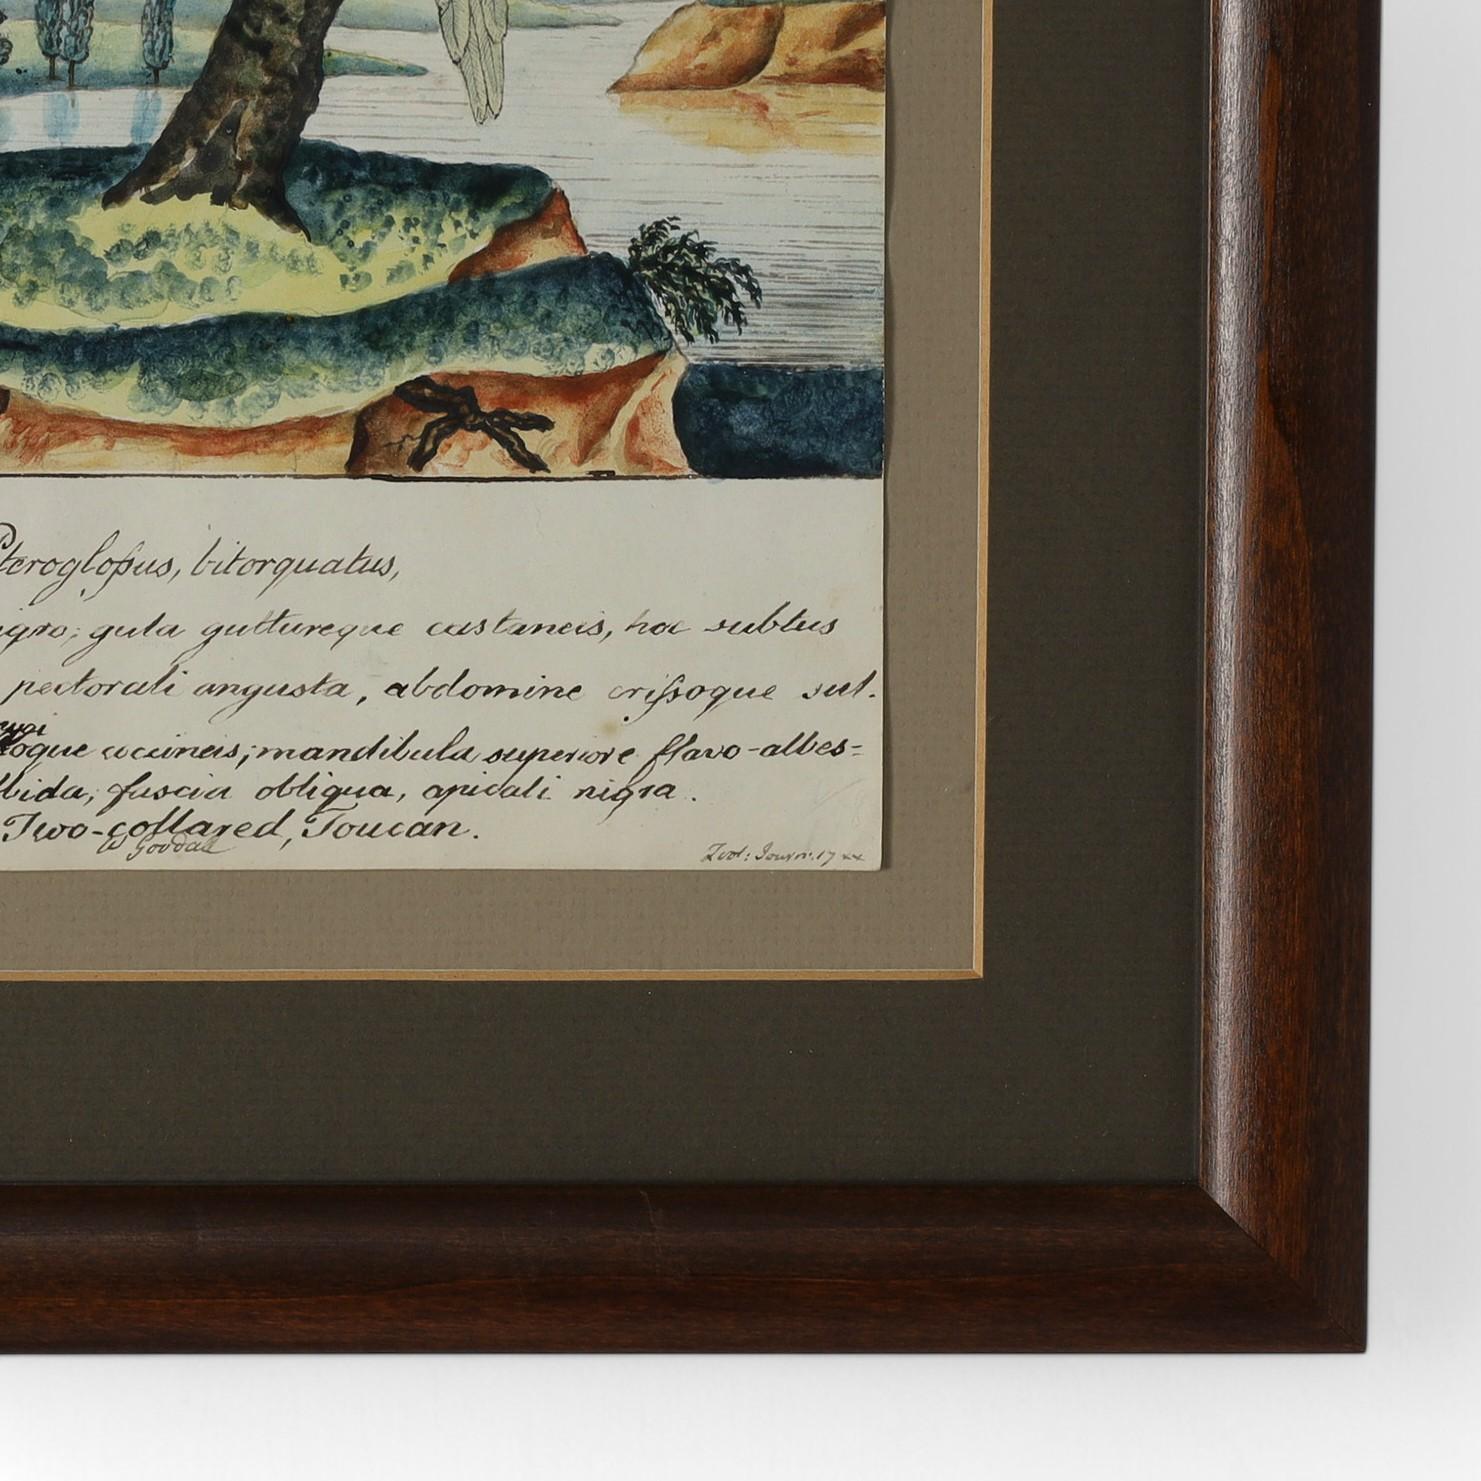 Pterogloſsus, bitorquatus,
nigro; gula guttureque castaneis, hoc subtus
pectorali angusta, abdomine criſsoque sul.
oque coccineis; mandibula superiore flavo-albes-
bida; fascia obliqua, apicali nigra.
Two-collared, Toucan.
W Goodall
Zool: Journ: 17